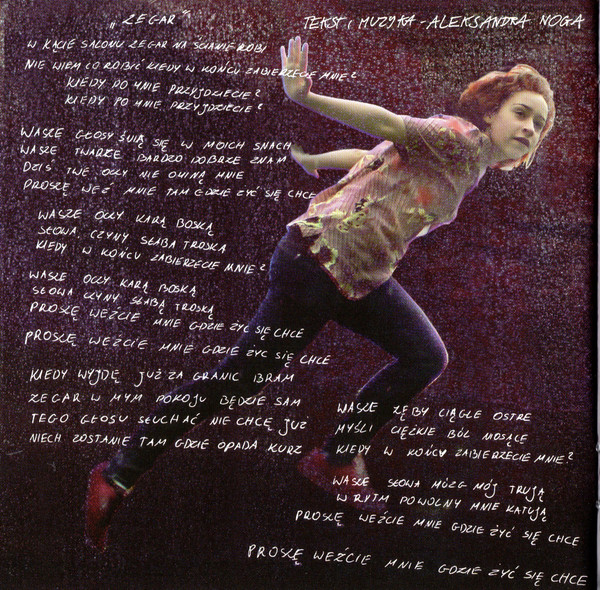 „ZEGAR"
TEKST I MUZYKA - ALEKSANDRA NOGA
W KĄCIE SALONU ZEGAR NA ŚCIANIE ROBI
NIE WIEM CO ROBIĆ KIEDY W KOŃCU ZABIERZECIE MNIE?
KIEDY PO MNIE PRZYJDZIECIE?
KIEDY PO MNIE PRZYJDZIECIE?
WASZE GŁOSY ŚNIĄ SIĘ W MOICH SNACH
WASZE TWARZE BARDZO DOBRZE ZNAM
DZIŚ TWE OCZY NIE OMINĄ MNIE
PROSZĘ WEŹ MNIE TAM GDZIE ŻYĆ SIĘ CHCE
WASZE OCZY KARĄ BOSKĄ
SŁOWA, CZYNY SŁABA TROSKA
KIEDY W KOŃCU ZABIERZECIE MNIE?
WASZE OCZY KARĄ BOSKĄ
SŁOWA CZYNY SŁABĄ TROSKĄ
PROSZĘ WEŹCIE MNIE GDZIE ŻYĆ SIĘ CHCE
PROSZĘ WEŹCIE MNIE GDZIE ŻYĆ SIĘ CHCE
KIEDY WYJDĘ JUŻ ZA GRANIC BRAM
ZEGAR W MYM POKOJU BĘDZIE SAM
TEGO GŁOSU SŁUCHAĆ NIE CHCĘ JUŻ
NIECH ZOSTANIE TAM GDZIE OPADA KURZ
WASZE ZĘBY CIĄGLE OSTRE
MYŚLI CIĘŻKIE BÓL NIOSĄCE
KIEDY W KOŃCU ZABIERZECIE MNIE?
WASZE SŁOWA MÓZG MÓJ TRUJĄ
W RYTM POWOLNY MNIE KATUJĄ
PROSZĘ WEŹCIE MNIE GDZIE ŻYĆ SIĘ CHCE
PROSZĘ WEŹCIE MNIE GDZIE ŻYĆ SIĘ CHCE